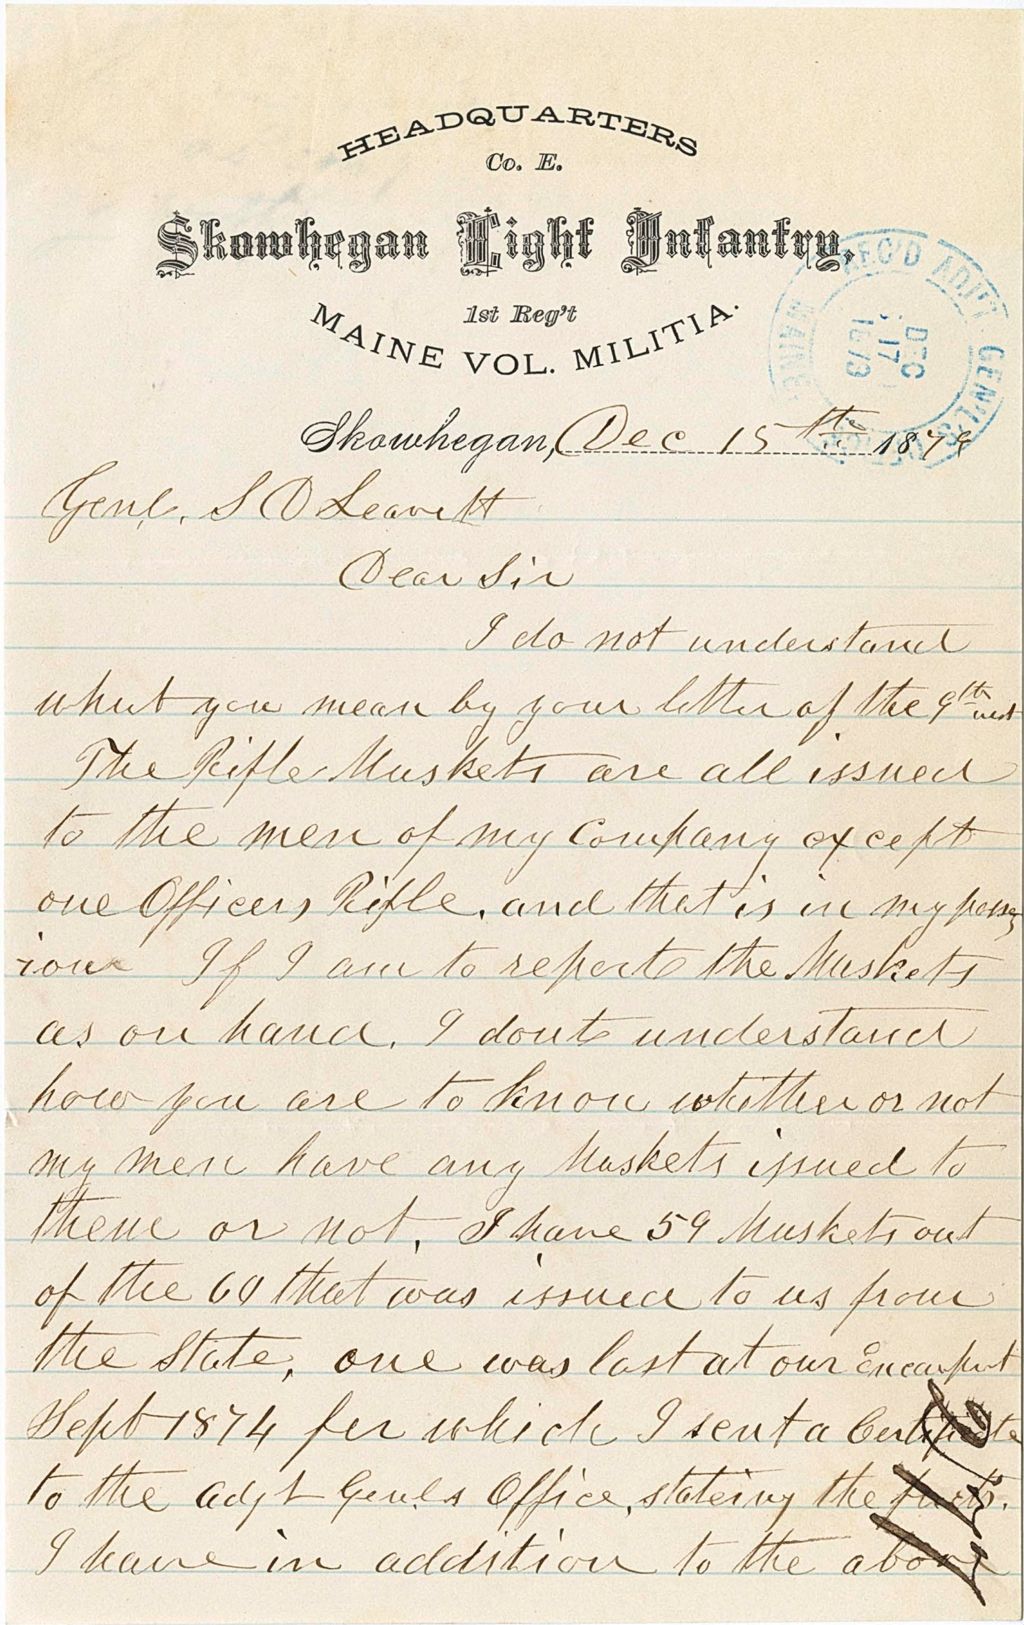 HEADQUARTERS
Co. E.
Skowhegan Light Infantry,
1st Reg't
MAINE VOL. MILITIA.
REC'D ADJ'T GEN'LS OFFICE MAINE
DEC
17
1879
Skowhegan, Dec 15th 1879
Genl. S D Leavitt
Dear Sir
I do not understand
what you mean by your letter of the 9th inst
The Rifle Muskets are all issued
to the men of my Company except
one Officers Rifle, and that is in my possess
ion If I am to report the Muskets
as on hand, I dont understand
how you are to know whether or not
my men have any Muskets issued to
them or not, I have 59 Muskets out
of the 60 that was issued to us from
the State, one was lost at our Encampt
Sept 1874 for which I sent a Certificate
to the Adjt Genls Office, stateing the facts.
I have in addition to the above